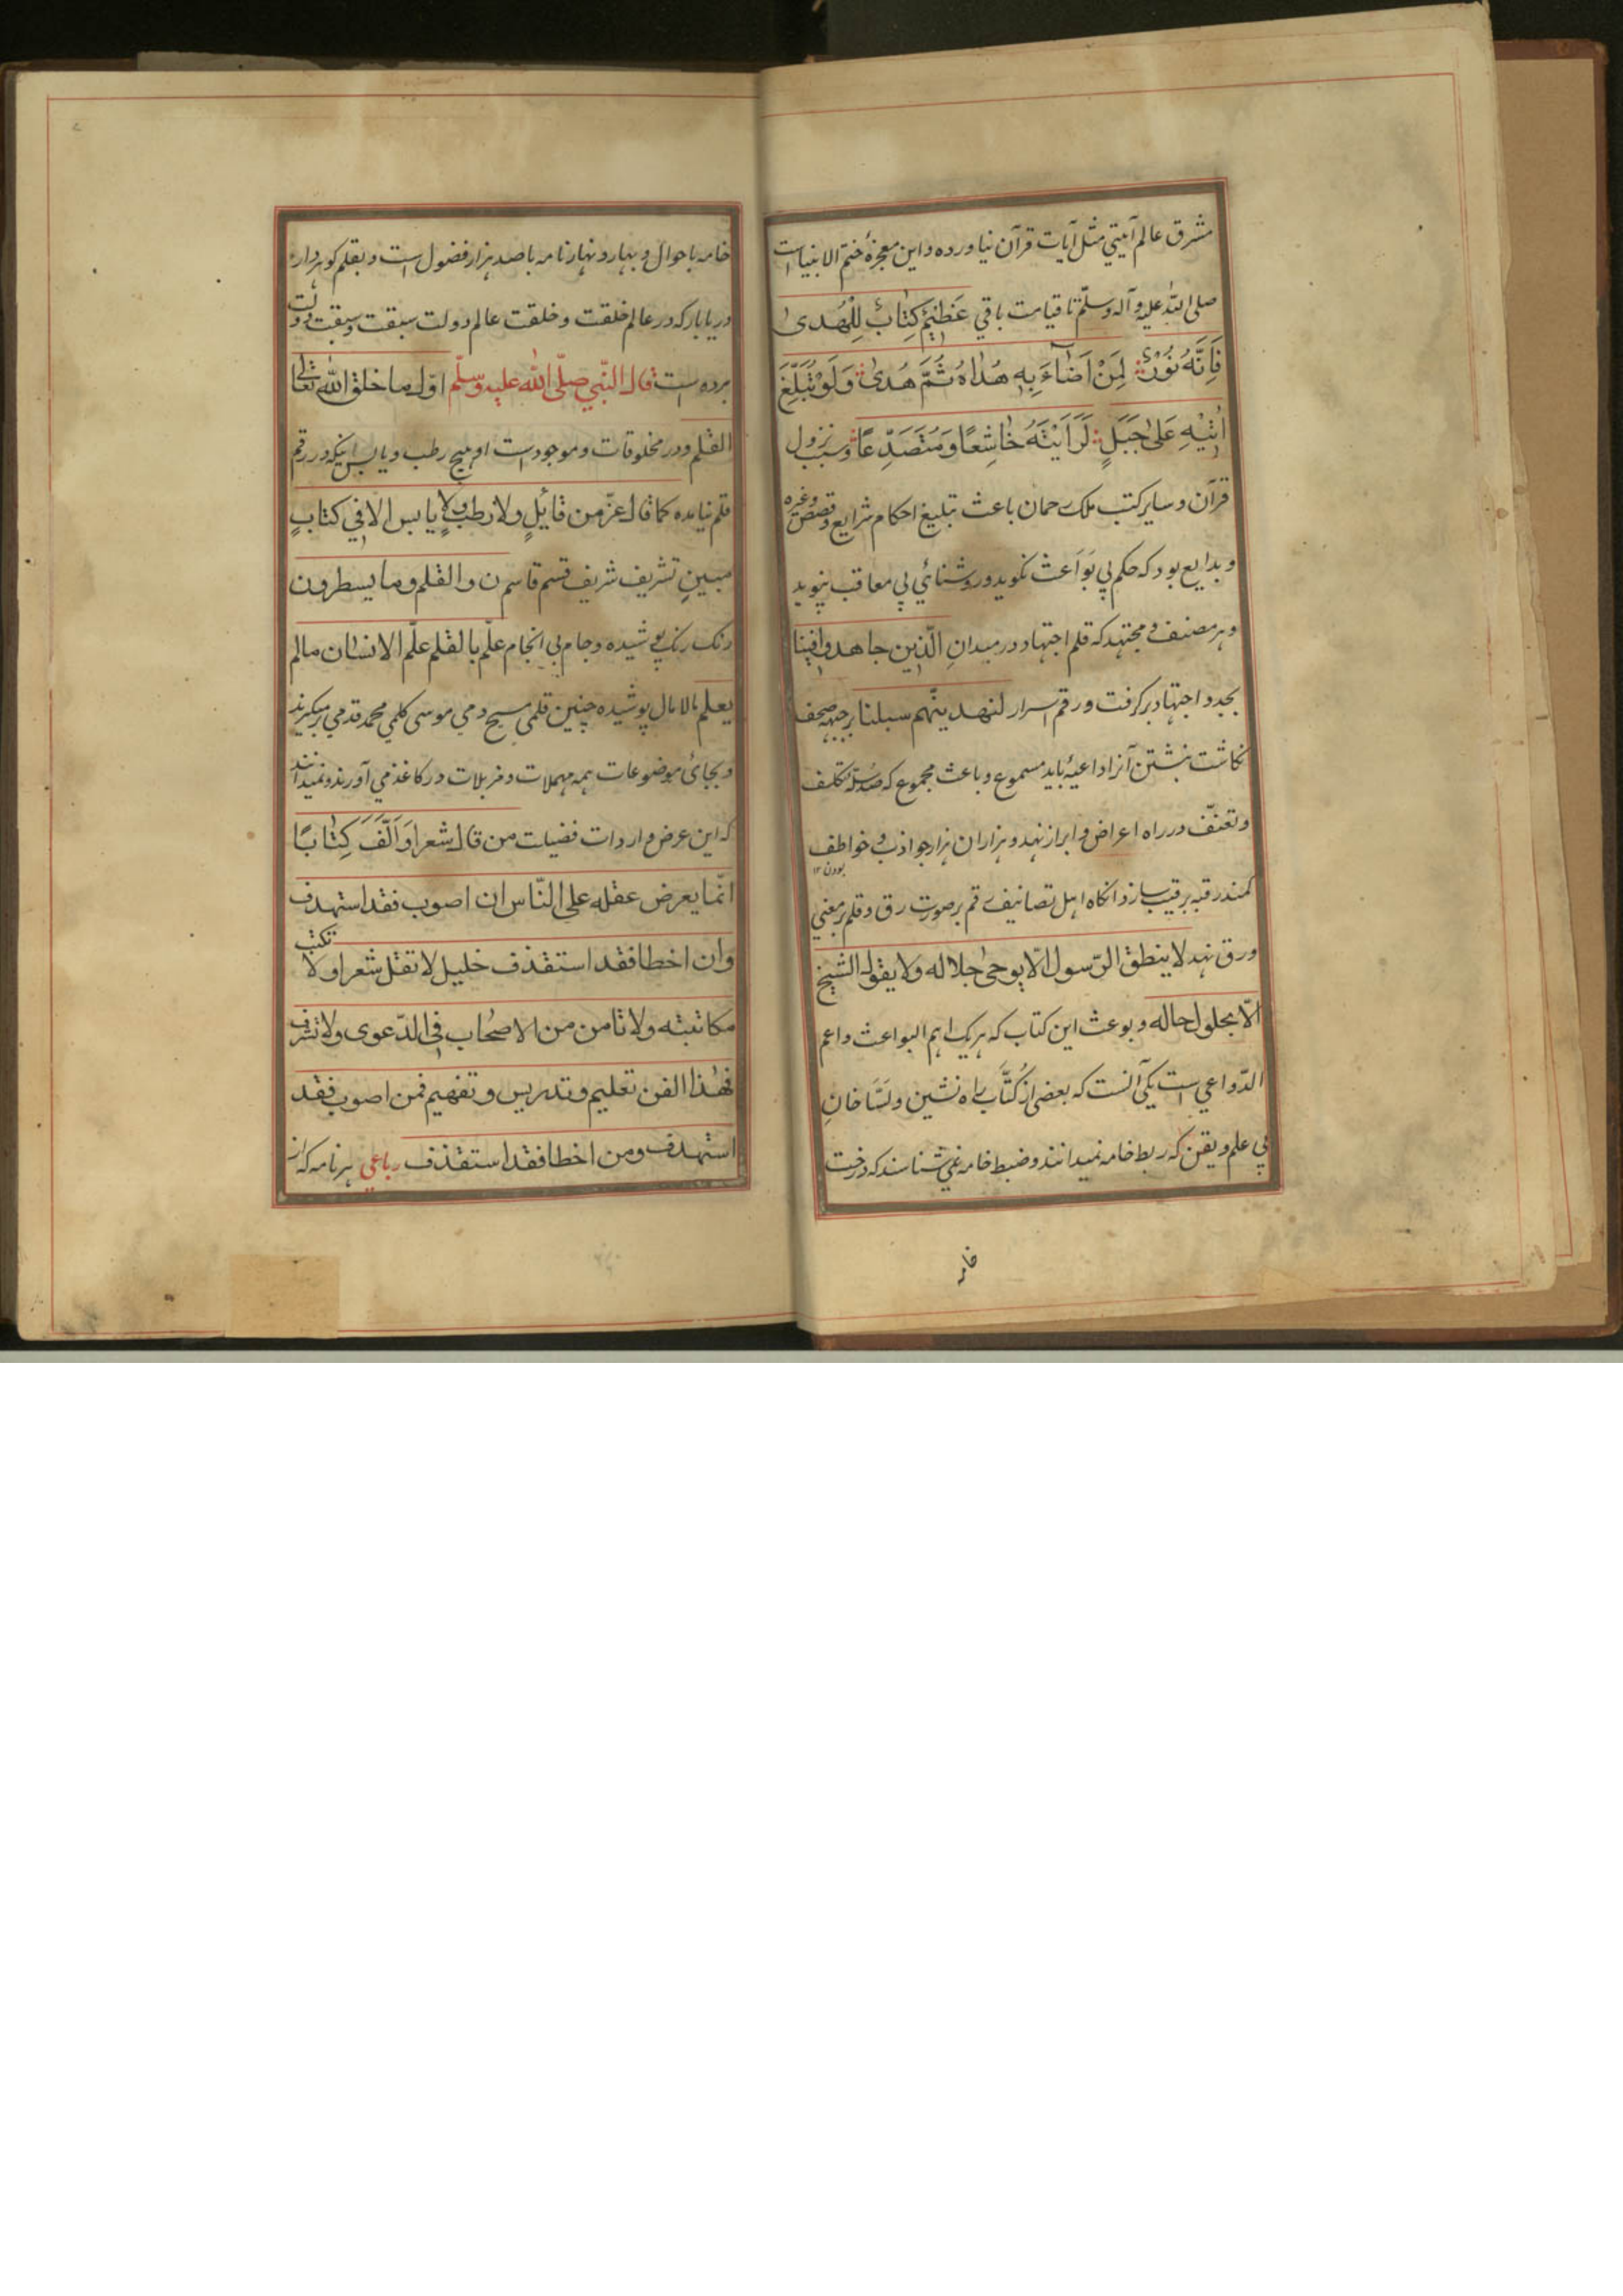 مشرق عالم آیتي مثل آیات قرآن نیاورده و این معجزهٔ ختم الانبیاست
صلی الله علیه و آله وسلّم تا قیامت باقي عَظیمٌ کِتابٌ لِلْهُدیٰ
فَاِنَّهُ نُورٌ لِمَنْ اَضآءَ بِهِ هُداهُ ثُمَّ هُدیٰ وَلَوْ تُبَلِّغَ
اٰیَتِهِ عَلیٰ جَبَلٍ لَرَاَیْتَهُ خاشِعًا وَمُتَصَدِّعًا وسبب نزول
قرآن و سایر کتب ملک رحمان باعث تبلیغ احکام شرایع و قصص وغیره
و بدایع بود که حکم بي بَوَاعث نکوید و روشنائي بي معاقب نپوید
و هر مصنف و مجتهد که قلم اجتهاد در میدانِ الّذین جاهدوا فینا
بجد و اجتهاد برکرفت و رقم اسرار لنهدینّهم سبلنا بر جبهه صحف
نکاشت نبشتن آنرا داعیهٔ باید مسموع و باعث مجموع که صد سلّه تکلف
و تعنّف در راه اعراض و ابراز نهد و هزاران هزار جواذب و خواطف
بودن ۱۲
کمند رقبه برقیب سازد انکاه اهل تصانیف رقم بر صورت رق و قلم بر معني
ورق نهد لاینطق الرّسول الّا بوحی اجلاله ولا یقول الشیخ
الّا بحلول حاله و بوعث این کتاب که هر یک اهم البواعث و اعم
الدّواعي است یکي آنست که بعضی از کُتَّاب راه نشین و نَسَّاخانِ
بي علم و یقن که ربط خامه نمیدانند و ضبط خامه نمي شناسند که درخت
خامه
خامه با حوال و بهار و نهار نامه با صد هزار فضول است و بقلم کوهردار
دریابار که در عالم خلقت و خلقت عالم دولت سبقت و سبقت دولت
برده است قال النّبي صلّی الله علیه وسلّم اوّل ما خلق الله تعالی
القلم و در مخلوقات و موجودات او هیچ رطب و یابس نیکه در رقم
قلم نیامده کما قال عزّ من قائلٍ ولا رطبٍ ولا یابس الّا في کتابٍ
مبینٍ تشریف شریف قسم قاسم ن والقلم وما یسطرون
رنک رنک پوشیده و جام بي انجام علّم بالقلم علّم الانسان مالم
یعلم مالامال پوشیده چنین قلمی مسیح دمي موسی کلمي محمد قدمي برمیکیرند
و بجائ موضوعات همه مهملات و مزبلات در کاغذ مي آورند و نمیدانند
که این عرض و اردات فضیات من قال شعرا وَاَلَّفَ کِتابًا
انّما یعرض عقله علی النّاس ان اصوب فقد استهدف
وان اخطا فقد استقذف خلیل لا تقل شعرا ولا تکتب
مکاتبته ولا تامن من الاصحاب في الدّعوی ولا تشرف
فهذا الفن تعلیم وتدریس وتفهیم فمن اصوب فقد
استهدف ومن اخطا فقد استقذف رباعي هر نامه که از